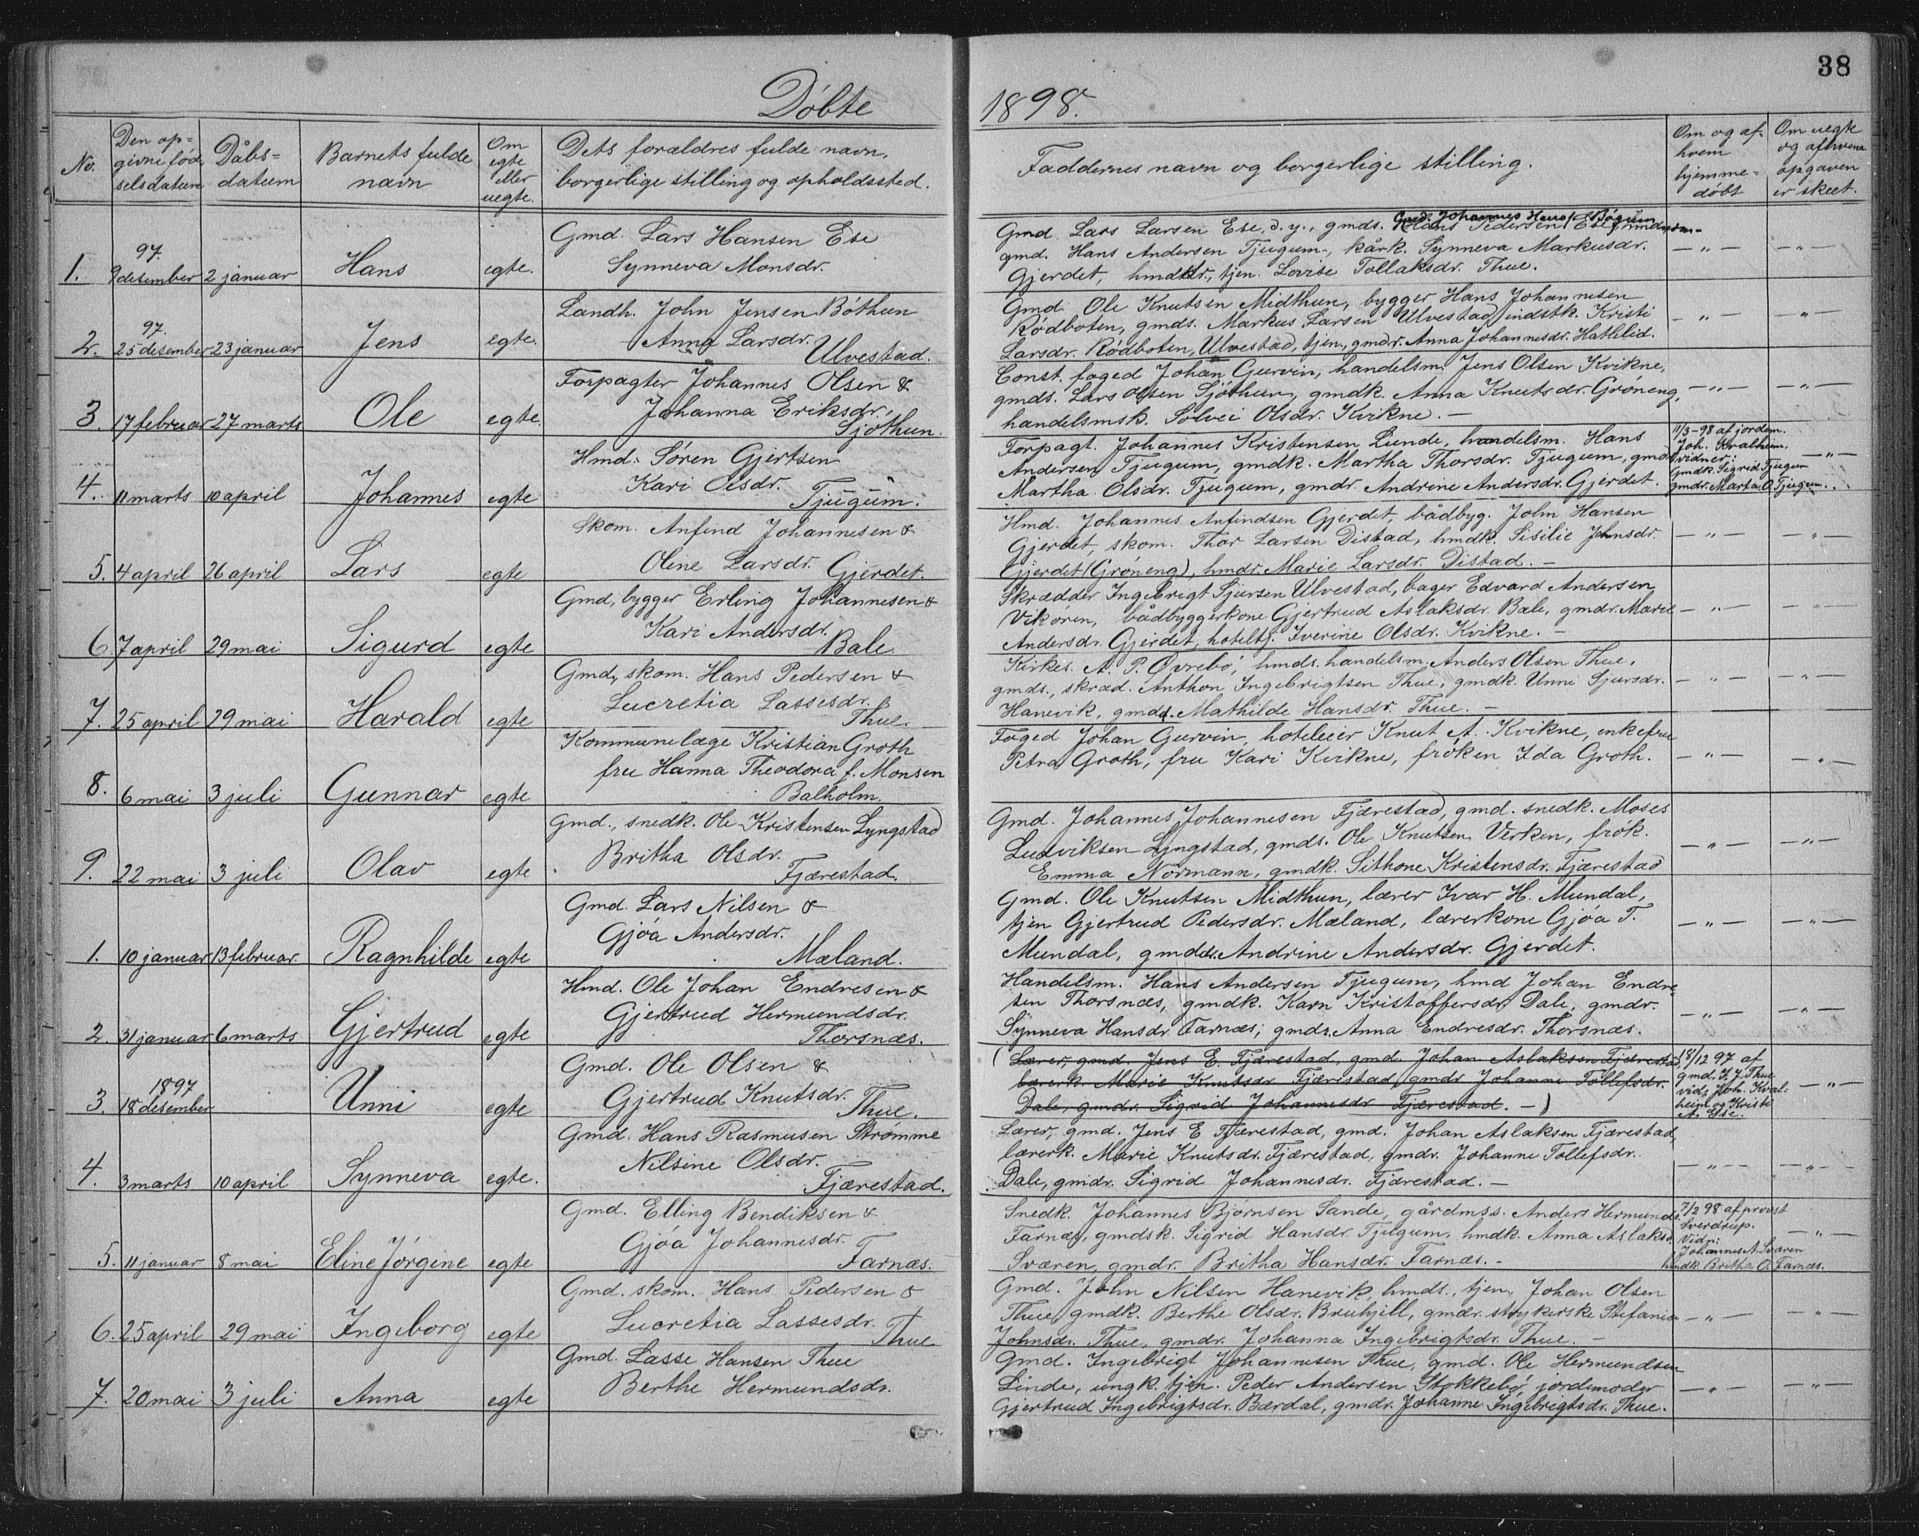 38
Døbte
1898.
No.
Den op-
givne fød-
selsdatum
Dåbs-
datum
Barnets fulde
navn
Om
egte
eller
uegte.
Dets forældres fulde navn,
borgerlige stilling og opholdssted.
Faddernes navn og borgerlige stilling.
Om og af
hvem
hjemme-
døbt
Om uegte
og af hvem
opgaven
er skeet.
1.
97.
9 desember
2 januar
Hans
egte.
Gmd. Lars Hansen Ese
Synneva Monsdr.
Gmd. Lars Larsen Ese, d.y., gmds.
gmd. Hans Andersen Tjugum, kårk. Synneva Markusdr.
Gjerdet, hmdkdr., tjen. Lovise Tollaksdr. Thue.
— " —
— " —
2.
97.
25 desember
23 januar
Jens
egte.
Landh. John Jensen Bøthun
Anna Larsdr.
Ulvestad.
Gmd. Ole Knutsen Midthun, bygger Hans Johannesen
Rødboten, gmds. Markus Larsen Ulvestad, indstk. Kristi
Larsdr. Rødboten, Ulvestad, tjen, gmdr. Anna Johannesdr. Hatlelid.
— " —
— " —
3.
17 februar
27 marts
Ole
egte.
Forpagter Johannes Olsen &
Johanna Eriksdr.
Sjøthun.
Const. foged Johan Gurvin, handelsm. Jens Olsen Kvikne,
gmds. Lars Olsen Sjøthun, gmdk. Anna Knutsdr. Grøneng,
handelsmsk. Sølvei Olsdr. Kvikne. —
— " —
— " —
4.
11 marts
10 april
Johannes
egte
Hmd. Søren Gjertsen
Kari Olsdr.
Tjugum.
Forpagt. Johannes Kristensen Lunde, handelsm. Hans
Andersen Tjugum, gmdk. Martha Thorsdr. Tjugum, gmdr.
Martha Olsdr. Tjugum, gmdr. Andrine Andersdr. Gjerdet.
11/3-98 af jordem.
Joh. Kvalheim,
vidner:
Gmdk. Sigrid Tjugum
gmdr. Marta O. Tjugum.
— " —
5.
4 april
26 april
Lars
egte
Skom. Anfind Johannesen &
Oline Larsdr. Gjerdet.
Hmd. Johannes Anfindsen Gjerdet, bådbyg. John Hansen
Gjerdet, skom. Thor Larsen Distad, hmdk. Sisilie Johnsdr.
Gjerdet (Grøneng), hmdr. Marie Larsdr. Distad. —
— " —
— " —
6.
7 april
29 mai
Sigurd
egte
Gmd, bygger Erling Johannesen &
Kari Andersdr.
Bale
Skrædder Ingebrigt Sjursen Ulvestad, bager Edvard Andersen
Vikøren, bådbyggerkone Gjertrud Aslaksdr. Bale, gmdr. Marie
Andersdr. Gjerdet, hoteltj. Iverine Olsdr. Kvikne. —
— " —
— " —
7.
25 april
29 mai
Harald
egte
Gmd, skom. Hans Pedersen &
Lucretia Lassesdr.
Thue.
Kirkes. A. P. Øvrebø, hmds. handelsm. Anders Olsen Thue,
gmds., skræd. Anthon Ingebrigtsen Thue, gmdk. Unni Sjursdr.
Hanevik, gmdd. Mathilde Hansdr. Thue. —
— " —
— " —
8.
6 mai
3 juli
Gunnar
egte
Kommunelæge Kristian Groth
fru Hanna Theodora f. Monsen
Balholm.
Foged Johan Gurvin, hoteleier Knut A. Kvikne, enkefru
Petra Groth, fru Kari Kvikne, frøken Ida Groth.
— " —
— " —
9.
22 mai
3 juli
Olav
egte
Gmd., snedk. Ole Kristensen Lyngstad
Britha Olsdr.
Fjærestad.
Gmd. Johannes Johannesen Fjærestad, gmd. snedk. Moses
Ludviksen Lyngstad, gmds. Ole Knutsen Verken, frøk.
Emma Normann, gmdk. Sithone Kristensdr. Fjærestad
— " —
— " —
1.
10 januar
13 februar.
Ragnhilde
egte
Gmd. Lars Nilsen &
Gjøa Andersdr.
Mæland.
Gmd. Ole Knutsen Midthun, lærer Ivar H. Mundal,
tjen Gjertrud Pedersdr. Mæland, lærerkone Gjøa T.
Mundal, gmddr. Andrine Andersdr. Gjerdet.
— " —
— " —
2.
31 januar
6 marts
Gjertrud
egte
Hmd. Ole Johan Endresen &
Gjertrud Hermundsdr.
Thorsnæs.
Handelsm. Hans Andersen Tjugum, hmd Johan Endre-
sen Thorsnæs, gmdk. Karn Kristoffersdr. Dale, gmdr.
Synneva Hansdr. Farnæs, gmdr. Anna Endresdr. Thorsnæs.
— " —
— " —
3.
1897
18 desember
Unni
egte
Gmd. Ole Olsen &
Gjertrud Knutsdr.
Thue.
(Lærer, gmd. Jens E. Fjærestad, gmd. Johan Aslaksen Fjærestad,
lærerk. Marie Knutsdr. Fjærestad, gmdr. Johanne Tollefsdr.
Dale, gmdr. Sigrid Johannesdr. Fjærestad. —)
18/12 97 af
gmd. I. J. Thue
vid. Joh. Kval-
heim og Kristi
A. Ese.
— " —
4.
3 marts
10 april
Synneva
egte.
Gmd. Hans Rasmusen Strømme
Nilsine Olsdr.
Fjærestad.
Lærer, gmd. Jens E Fjærestad, gmd. Johan Aslaksen Fjærestad,
lærerk. Marie Knutsdr. Fjærestad, gmdr. Johanne Tollefsdr.
Dale, gmdr. Sigrid Johannesdr. Fjærestad. —
— " —
— " —
5.
11 januar
8 mai
Eline Jørgine
egte
Gmd. Elling Bendiksen &
Gjøa Johannesdr.
Farnæs.
Snedk. Johannes Bjørnsen Sande, gårdmss. Anders Hermunds.
Farnæs, gmdsk. Sigrid Hansdr. Tjugum, hmdk. Anna Aslaksd.
Sværen, gmdr. Britha Hansdr. Farnæs. -
7/2 98 af provst
Sverdrup.
Vidn:
Johannes A. Sværen
hmdk Britha O. Farnæs.
— " —
6.
25 april
29 mai
Ingeborg
egte
Gmd. skom. Hans Pedersen &
Lucretia Lassesdr.
Thue
Gmd. John Nilsen Hanevik, hmds., tjen. Johan Olsen
Thue, gmdk. Berthe Olsdr. Bruhjell, gmdr. strykerske Stefania
Johnsdr. Thue, gmdr. Johanna Ingebrigtsdr. Thue. —
— " —
— " —
7.
20 mai
3 juli
Anna
egte
Gmd. Lasse Hansen Thue
Berthe Hermundsdr.
Gmd. Ingebrigt Johannesen Thue, gmd. Ole Hermundsen
Linde, ungk. tjen. Peder Andersen Stokkebø, jordemoder
Gjertrud Ingebrigtsdr. Bærdal, gmdr. Johanne Ingebrigtsdr. Thue.
— " —
— " —